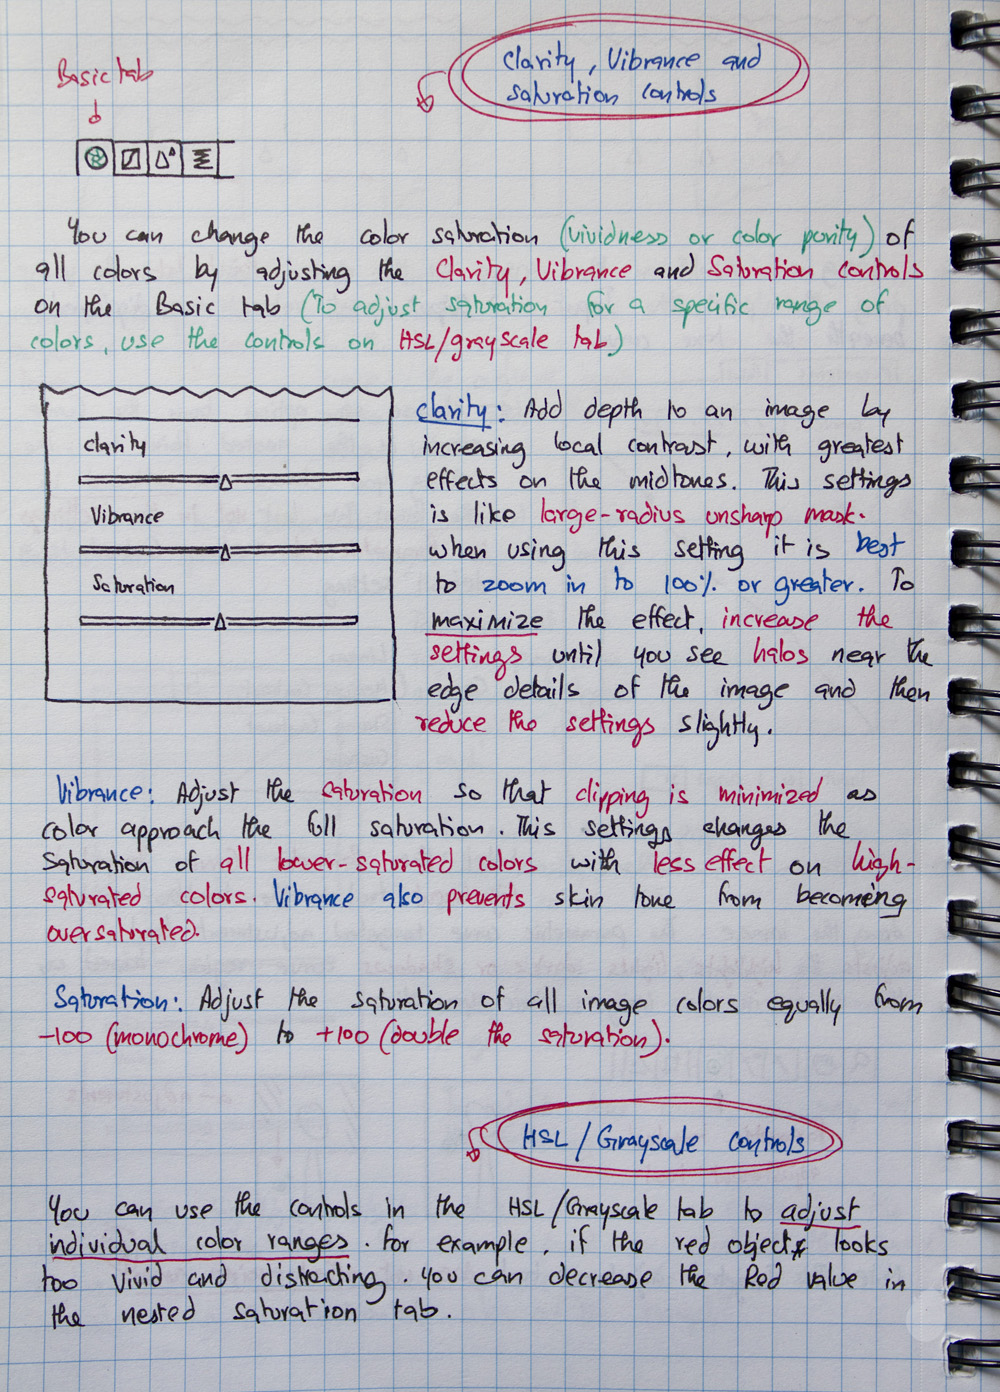 Clarity, Vibrance and
saturation controls
Basic tab
You can change the color saturation (vividness or color purity) of
all colors by adjusting the Clarity, Vibrance and Saturation controls
on the Basic tab (To adjust saturation for a specific range of
colors, use the controls on HSL/grayscale tab)
clarity
Vibrance
Saturation
clarity: Add depth to an image by
increasing local contrast, with greatest
effects on the midtones. This settings
is like large-radius unsharp mask.
when using this setting it is best
to zoom in to 100% or greater. To
maximize the effect, increase the
settings until you see halos near the
edge details of the image and then
reduce the settings slightly.
Vibrance: Adjust the saturation so that clipping is minimized as
color approach the full saturation. This settings changes the
saturation of all lower-saturated colors with less effect on high-
saturated colors. Vibrance also prevents skin tone from becoming
oversaturated.
Saturation: Adjust the saturation of all image colors equally from
-100 (monochrome) to +100 (double the saturation).
HSL / Grayscale controls
You can use the controls in the HSL/Grayscale tab to adjust
individual color ranges. for example, if the red object looks
too vivid and distracting. you can decrease the Red value in
the nested saturation tab.